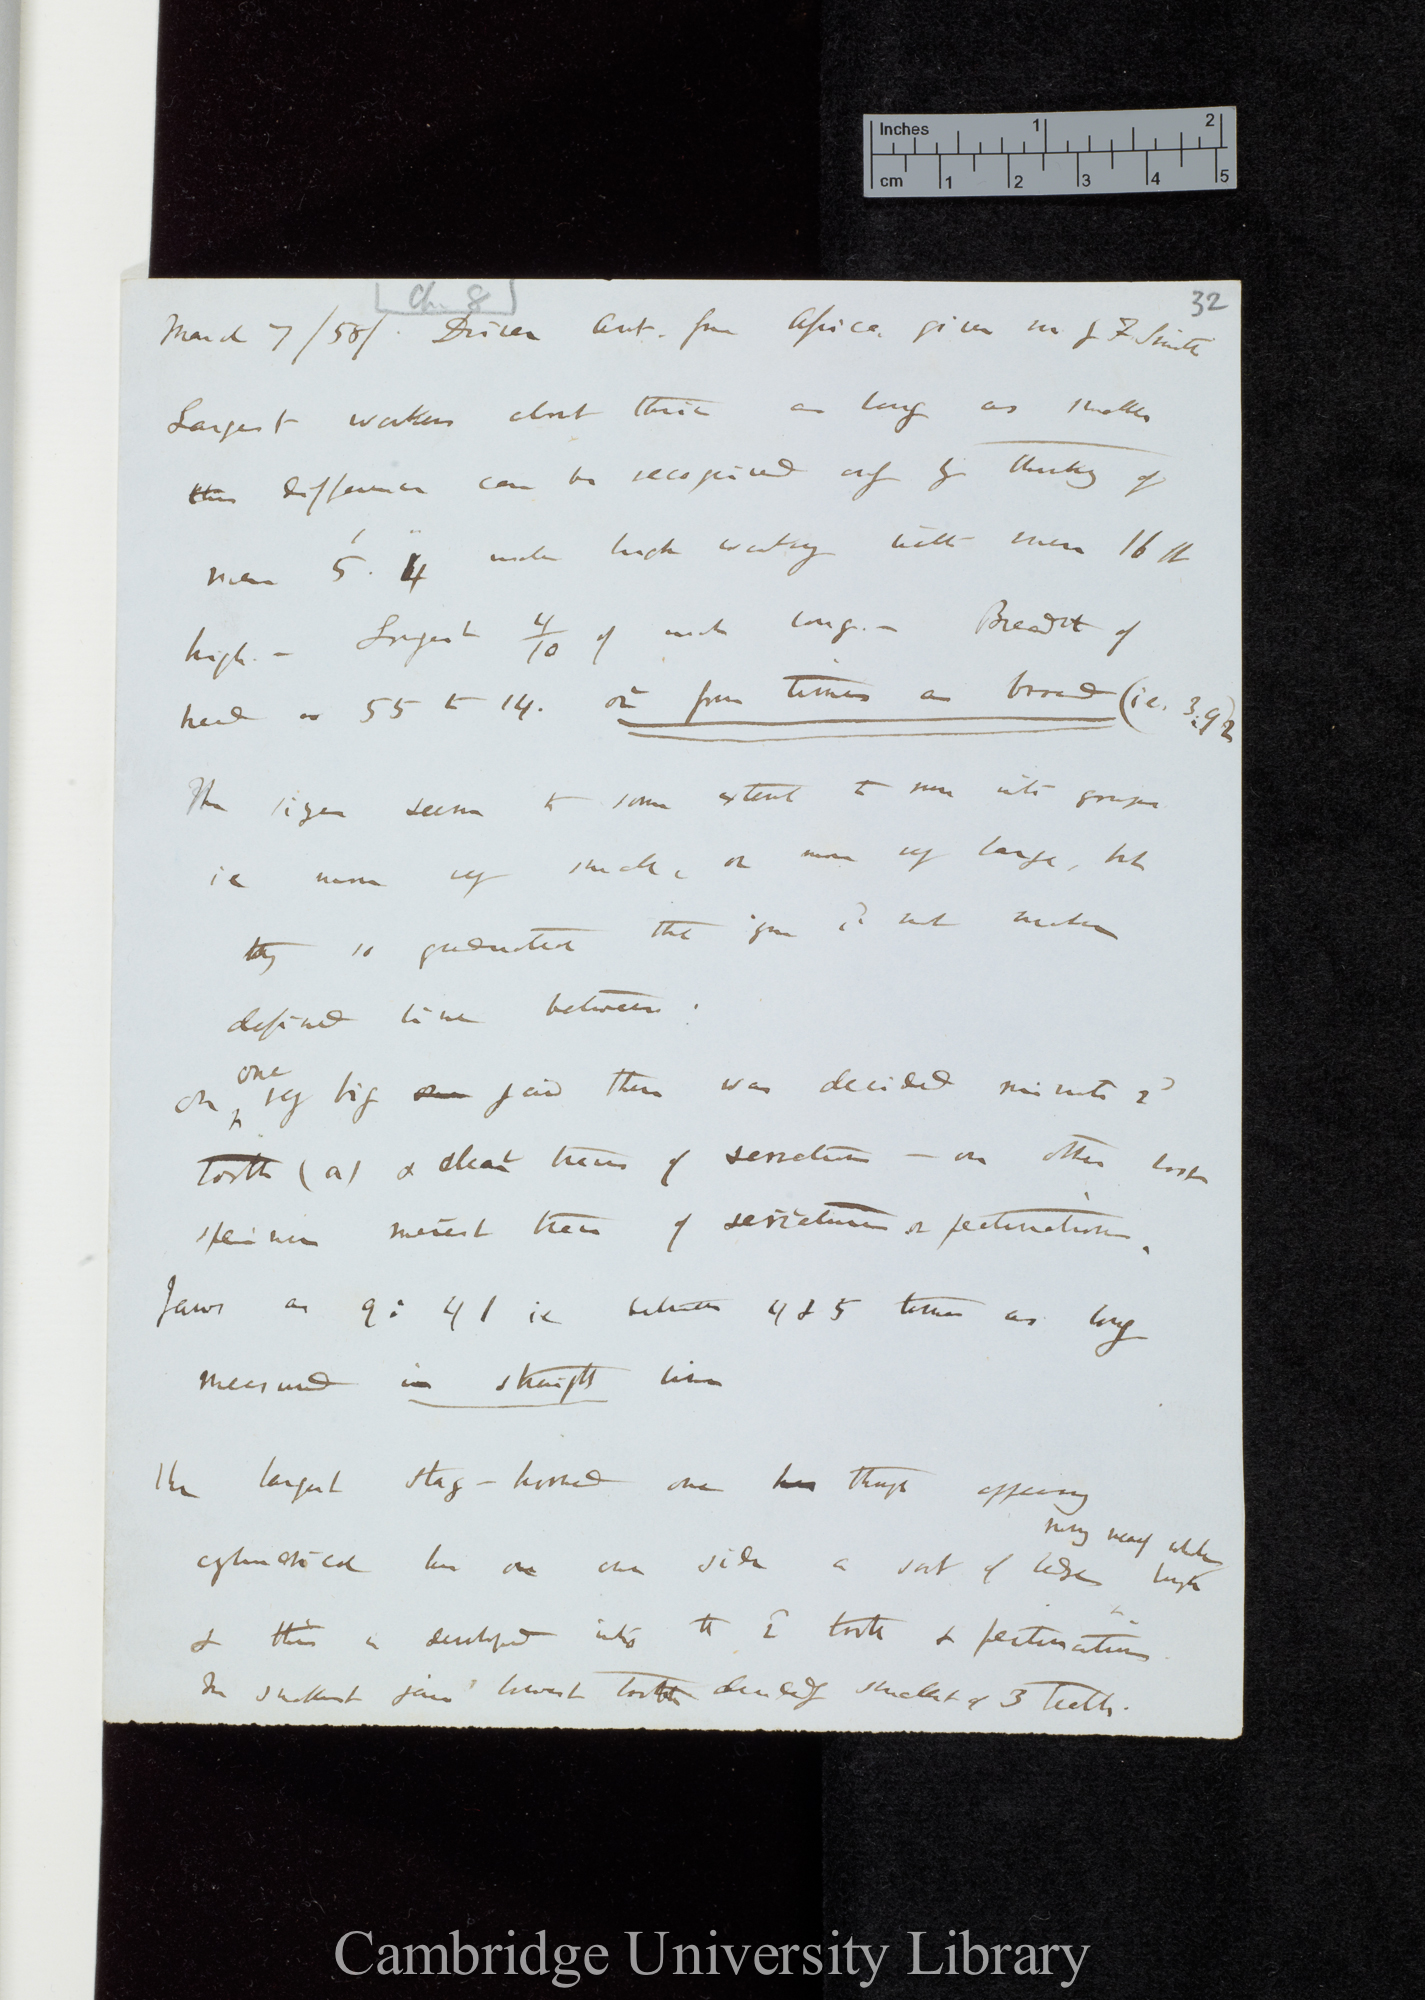 Inches 1 2
cm 1 2 3 4 5
[Ch. 8]
32
March 7/58/. Driver Ant. from Africa. given me by F. Smith
Largest workers about thrice as long as smaller
this difference can be recognised only by thinking of
men 5' 4" inches high working with men 16 ft
high. — Largest 4/10 of inch long. — Breadth of
head as 55 to 14. or four times as broad (i.e. 3.92
The sizes seem to some extent to run into groups
ie more very small, or more very large, but
they so graduated that is not
defined line between:
On one very big jaw there was decided minute 2d
tooth (a) & clear traces of serratures — on other large
specimen merest trace of serratures or pectinations.
Jaws as 9: 41 ie between 4 & 5 times as long
measured in straight line
The largest stag-horned one though appearing
cylindrical has on one side a sort of ledge
running nearly whole length
& this is developed into the 2d tooth & pectinations.
In smallest jaws lowest tooth decidedly smallest of 3 teeth.
Cambridge University Library